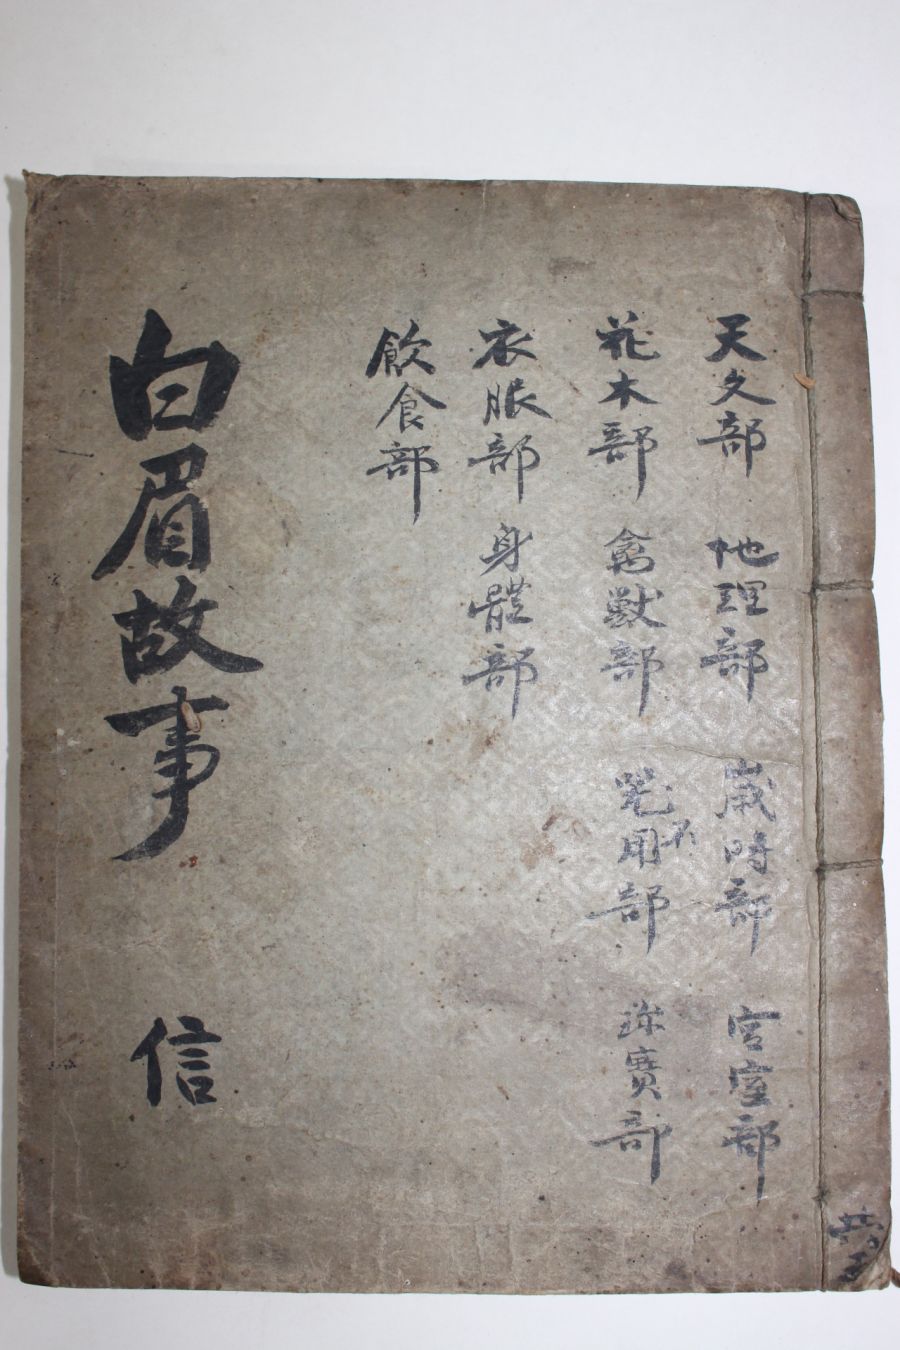 天文部 地理部 歲時部 宮室部
花木部 禽獸部 器用部 珎寶部
衣服部 身體部
飲食部
白眉故事 信
共五